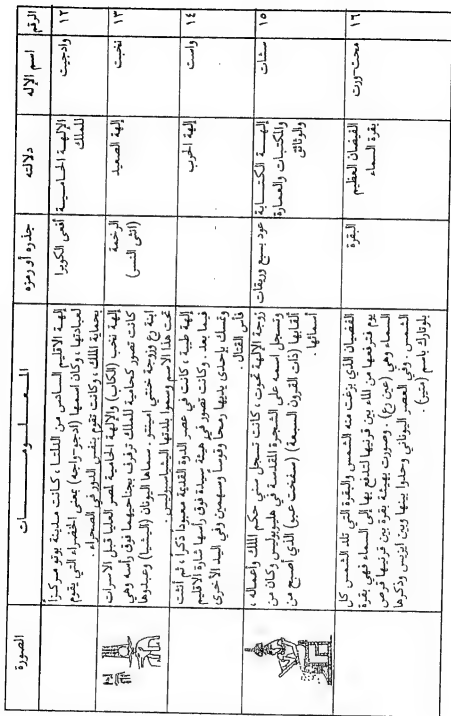 الرقم
اسم الإله
دلالته
جذره أو رمزه
المعلومات
الصورة
١٢
وادجيت
الإلهة الحامية
للملك
أفعى الكوبرا
إلهة الاقليم السادس من الدلتا، كانت مدينة بوتو مركزاً
لعبادتها، وكان اسمها (ادجو-واجه) بمعنى الخضراء التي يقوم
بحماية الملك، وكانت تقوم بنفس الدور في الصحراء.
١٣
نخبت
إلهة الصعيد
الرخمة
(انثى النسر)
إلهة نخب (الكاب) والإلهة الحامية لمصر العليا قبل الاسرات
كانت تصور كحامية للملك ترفرف بجناحيها فوق رأسه وهي
ابنة رع وزوجة خنتي امينتو. سماها اليونان (اليثييا) وعبدوها
تحت هذا الاسم وسموا بلدتها
١٤
واست
إلهة الحرب
إلهة طيبة، كانت في عصر الدولة القديمة معبوداً ذكراً، ثم أنثت
فيما بعد. وكانت تصور في هيئة سيدة فوق رأسها شارة الاقليم
وتمسك بإحدى يديها رمحاً وقوساً وسهمين وفي اليد الأخرى
فأس القتال.
١٥
سشات
إلهة الكتابة
والمكتبات والعمارة
والوثائق
عود بسبع وريقات
زوجة الإله تحوت، كانت تسجل سني حكم الملك وأعماله،
وتسجل اسمه على الشجرة المقدسة في هليوبولس وكان من
ألقابها (ذات القرون السبعة) (سفخت عبو) الذي أصبح من
أسمائها.
١٦
محت-ورت
الفيضان العظيم
بقرة السماء
البقرة
الفيضان الذي بزغت منه الشمس والبقرة التي تلد الشمس كل
يوم فترفعها من الماء بين قرنيها لتدفع بها إلى السماء فهي بقرة
السماء وهي (عين رع). وصورت بهيئة بقرة بين قرنيها قرص
الشمس. وفي العصر اليوناني وحدوا بينها وبين ايزيس وذكرها
بلوتارك باسم (ميثير).